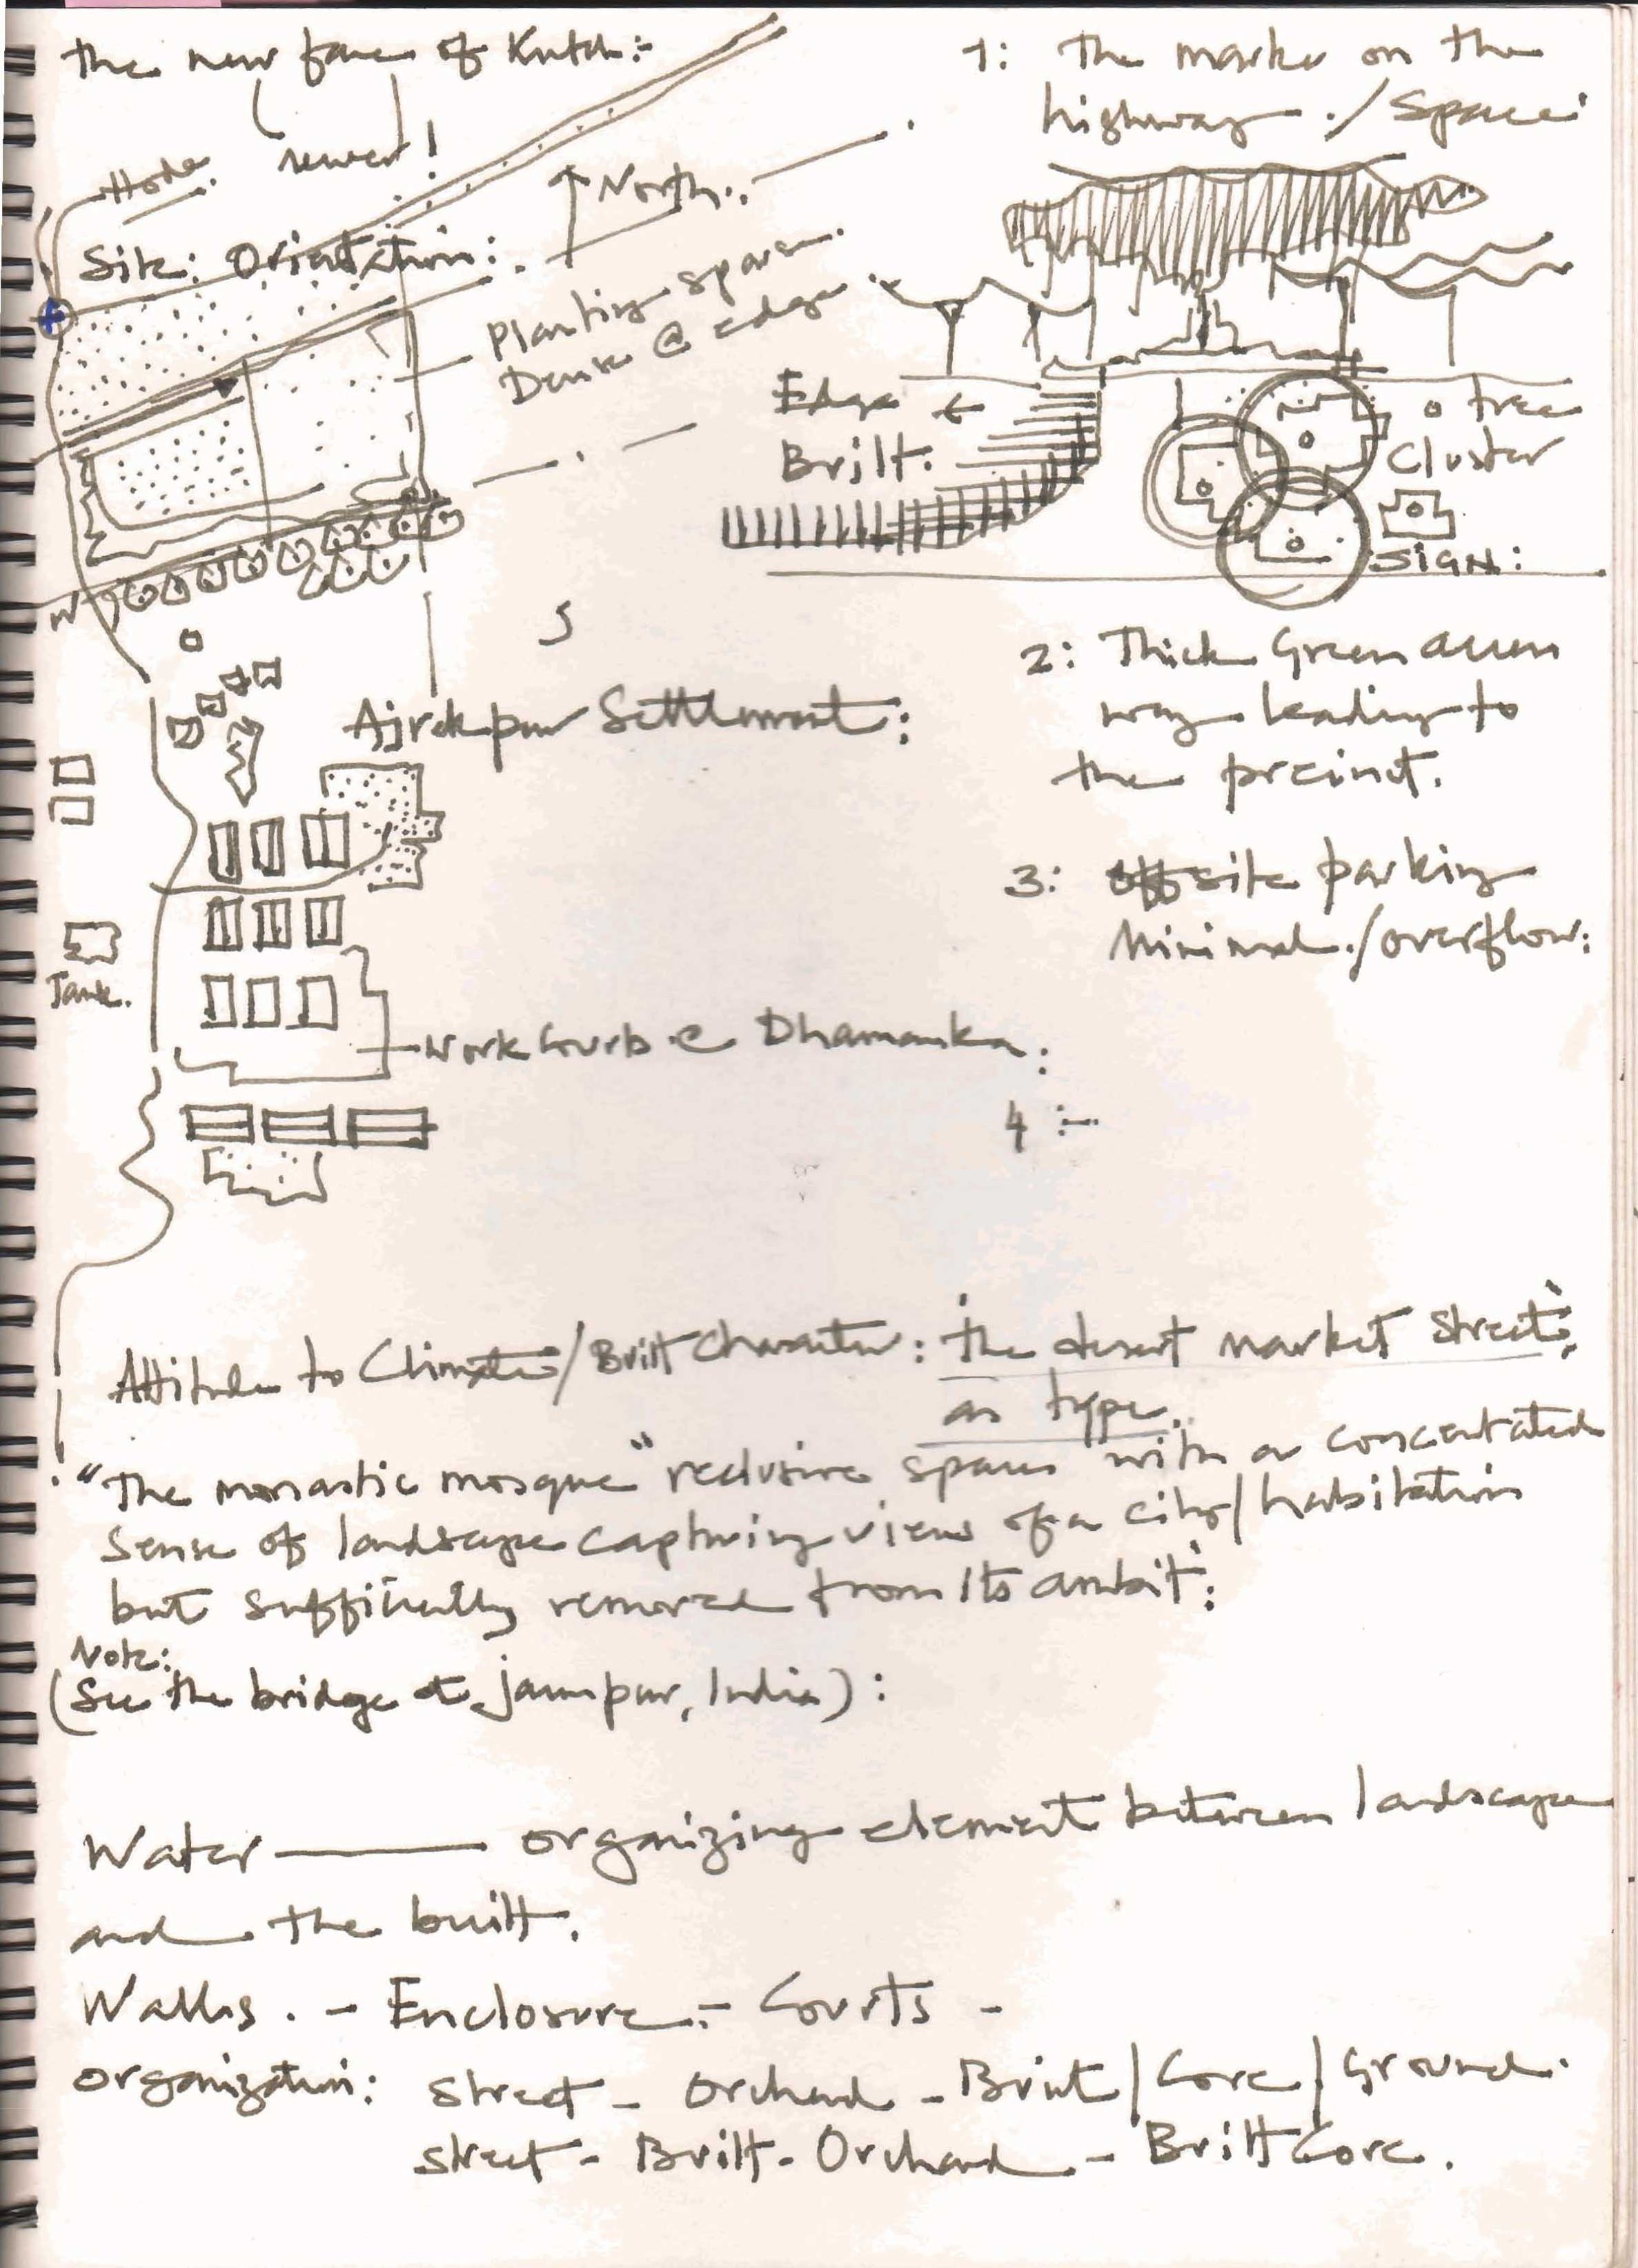 The new face of Kutch:-
newer!
Site: Orientation:
North.
Planting sparse.
Dense @ edge
W
S
Ajrakpur Settlement:
Tank.
Work Courts @ Dhamanka:
1: The marker on the
highway ./Space:
Edge
Built.
tree
Cluster
SIGN:
2: Thick Green
way leading to
the precinct.
3: Offsite parking
Minimal./overflow:
4 :-
Attitude to Climate/Built Character: 'the desert market street'
as type.
"The monastic mosque" reclusive spaces with a concentrated
Sense of landscape capturing views of a city/habitation
but sufficiently removed from its ambit:
Note:
(See the bridge at jaunpur, India):
Water — organizing element between landscape
and the built.
Walls. - Enclosure:- Courts -
Organization: Street - Orchard - Built/Core/Ground.
Street - Built - Orchard - Built Core.